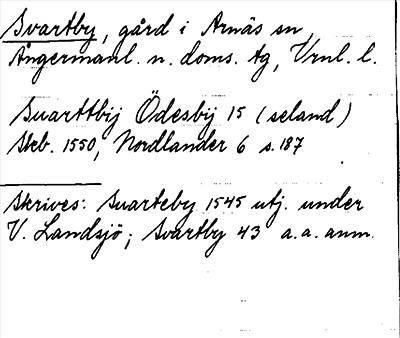 Svartby, gård i Arnäs sn
Ångermanl. n. doms. tg, Vrnl. l.
Suarttbij Ödesbij 15 (seland)
Skeb. 1550, Nordlander 6 s. 187
Skrives: Suarteby 1545 utj. under
V. Landsjö; Svartby 43 a. a. anm.